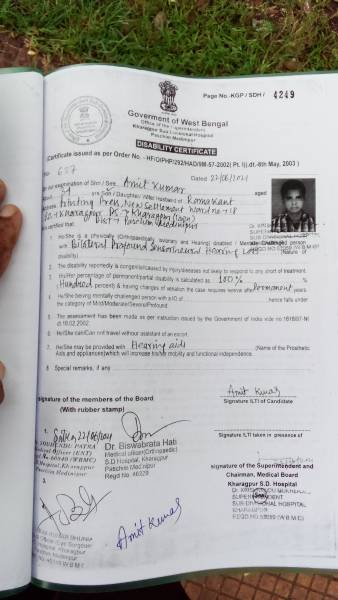 Page No.-KGP / SDH / 4249
Goverment of West Bengal
Office of the Superintendent
Kharagpur Sub Divisional Hospital
Paschim Medinipur
DISABILITY CERTIFICATE
(Certificate issued as per Order No. - HF/O/PHP/292/HAD/9M-57-2002( Pt. I),dt.-6th May, 2003 )
No. 607 Dated 22/06/2021
examination of Shri / Sew Amit Kumar aged
yrs Son / Daughter/ Wife/ Husband of Ramakant
Address Printing Press, New Settlement Ward no-18
P.O.+Kharagpur PS-Kharagpur (Town)
Dist-Paschim Medinipur
is certified that:
1. He/She is a physically (Orthopaedically, Disability and Hearing) disabled / Mentally Challenged person
with Bilateral Profound Sensorineural Hearing Loss (Nature of
disability)
2. The disability reportedly is congenital/caused by injury/diseases not likely to respond to any short of treatment.
3. His/Her percentage of permanent/partial disability is calculated as 100% %
(Hundred percent) & having changes of variation the case requires review after Permanent years.
4. He/She being mentally challenged person with a IQ of hence falls under
the category of Mild/Moderate/Severe/Profound.
5. The assessment has been made as per instruction issued by the Government of India vide no.16/18/97-NI
dt.18.02.2002.
6. He/She can/Can not travel without assistant of an escort.
7. He/She may be provided with Hearing aids (Name of the Prosthetic
Aids and appliances) which will increase his/her mobility and functional independence.
8 Special remarks, if any
Amit Kumar
Signature /LTI of Candidate
signature of the members of the Board
(With rubber stamp)
1. 22/06/2021
Dr. Biswabrata Hati
Medical officer(Orthopaedic)
S.D. Hospital, Kharagpur
Paschim Medinipur
Regd No. 46328
Signature /LTI taken in presence of
signature of the Superintendent and
Chairman, Medical Board
Kharagpur S.D. Hospital
SUPERINTENDENT
SUB-DIVISIONAL HOSPITAL
KHARAGPUR
Seal
3.
Amit Kumar